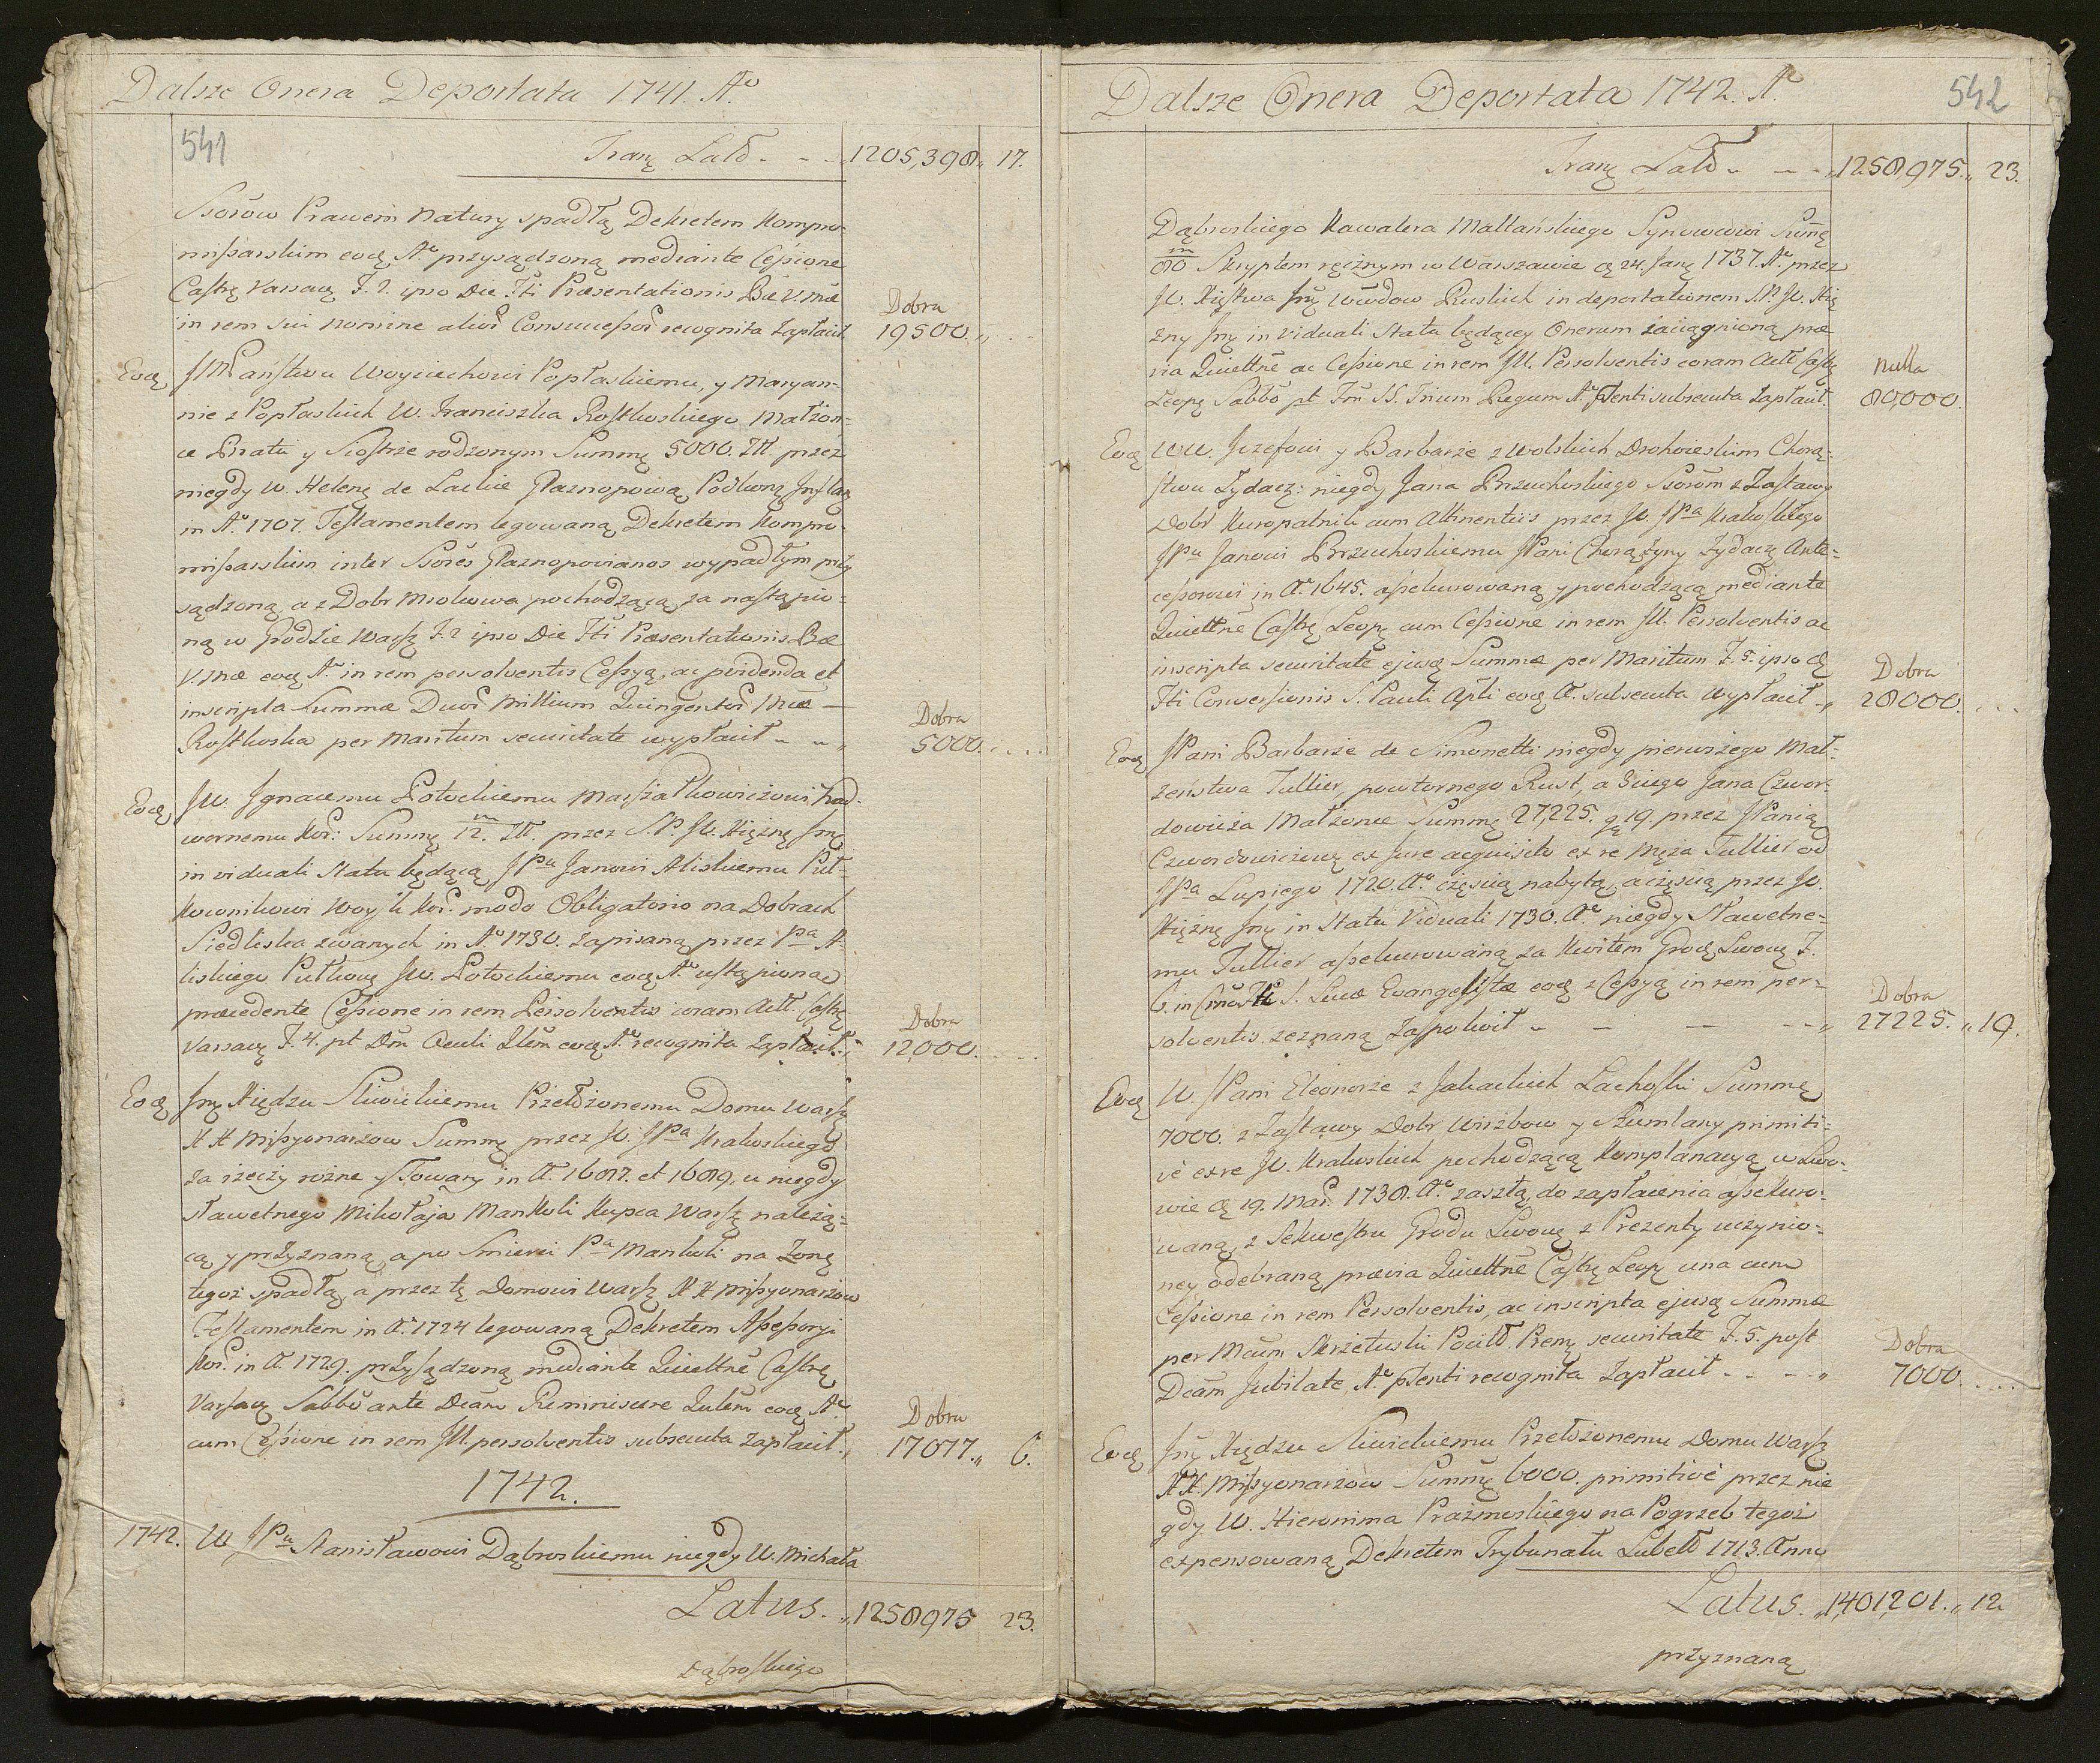 Dalsze Onera Deportata 1741. Aº
541
Tranz Latd. - - 1205,398 „ 17.
Ssorow Prawem Natury spadłą Dekretem Kompro-
missarskim eodę Aº przysądzoną mediante Cessione
Castrę Varsavę F. 2. ipso Die Fti Præsentationis Bæ V. Mæ
in rem sui nomine alior Consuccessor recognita zapłacił.
Dobra
19500. „
Eodę JMPaństwu Woyciechowi Popłaskiemu, y Maryan-
nie z Popłaskich W. Franciszka Rostkoskiego Małżon-
ce Bratu y Siostrze rodzonym Summę 5000. Złł. przez
niegdy W. Helenę de Lackie Głaznopową Podkonę Inflanę
in Aº 1707. Testamentem legowaną Dekretem Kompro-
missarskim inter Ssores Głaznopovianos wypadłym przy
sądzoną a z Dobr Mrokowa pochodzącą za nastąpio-
ną w Grodzie Warsz F. 2 ipso Die Fti Præsentationis Bæ
V. Mæ eodę Aº in rem persolventis Cessyą, ac providenda et
inscripta Summæ Duor Millium Quingentor Mcæ —
Rostkoska per Maritum securitate wypłacił - - „
Dobra
5000. . . .
Eodę JW. Ignacemu Potockiemu Marszałkowiczowi Nad-
wornemu Kor: Summę 12.m Złł. przez S. P. JW. Xiężnę Jmę
in viduali Statu będącą JPu Janowi Aliskiemu Puł-
kownikowi Woysk Kor. modo Obligatorio na Dobrach
Siedliska zwanych in Aº 1730. zapisaną przez Pa A-
liskiego Pułkowę JW. Potockiemu eodę Aº ustąpioną
præcedente Cessione in rem Persolventis coram Actt Castrę
Varsavę F. 4. pt Dm Oculi Qlem eodę Aº recognita zapłacił.
Dobra
12,000. . . .
Eodę Jmę Xiędzu Sliwickiemu Przełożonemu Domu Warsz
XX Missyonarzow Summę przez JW. JPa Krakoskiego
za rzeczy rożne y Towary in Aº 1687. et 1689. u niegdy
sławetnego Mikołaja Mankoli Kupca Warsz należą-
cą y przyznaną, a po Smierci Pa Mankoli na Żonę
tegoż spadłą, a przez tę Domowi Warsz XX Missyonarzow
Testamentem in Aº 1724 legowaną Dekretem Assessoryi
Kor. in Aº 1729. przysądzoną mediante Quiettne Castrę
Varsavę Sabbo ante Dcam Reminiscere Qulem eodę Aº
cum Cessione in rem JW. persolventis subsecuta zapłacił. „
Dobra
17077. „ 6.
1742.
1742. W JPu Stanisławowi Dąbroskiemu niegdy W. Michała
Latus. „ 1258975 23.
Dąbroskiego
Dalsze Onera Deportata 1742. Aº
542
Tranz Latd - - - 1258,975. „ 23.
Dąbroskiego Kawalera Maltańskiego Synowcowi Summę
80m Skryptem ręcznym w Warszawie dę 24. Janę 1737. Aº przez
JW. Xięstwa Jmę Wwdow Ruskich in deportationem S. P. JW. Xię
żny Jmę in viduali Statu będącey Onerum zaciągnioną præ
via Quiettne ac Cessione in rem JW. Persolventis coram Actt Castrę
Leopę Sabbo pt Fm SS. Trium Regum Aº Psenti subsecuta zapłacił.
Nulla
80,000.
Eodę WW. Jozefowi y Barbarze z Wolskich Drohoieskim Chorą-
stwu Zydacz: niegdy Jana Brzuchoskiego Ssorom z Zastawy
Dobr Kuropatnik cum Attinentiis przez JW. JPa Krakoskiego
JPu Janowi Brzuchoskiemu JPani Chorążyny Zydacz Ante-
cessorowi in Aº 1645. assekurowaną y pochodzącą mediante
Quiettne Castrę Leopę cum Cessione in rem JW. Persolventis ac
inscripta securitate ejusdę Summæ per Maritum F. 5. ipso dę
Fti Conversionis S. Pauli Apli eodę Aº subsecuta wypłacił. „
Dobra
28000. . . .
Eodę JPani Barbarze de Simonetti niegdy pierwszego Mał-
żeństwa Tullier, powtornego Rust, a 3ciego Jana Czwor-
dowicza Małżonce Summę 27,225. gę 19 przez JPanią
Czwordowiczową ex Jure acquisito ex re Męża Tullier od
JPa Lupiego 1720. Aº częścią nabytą, a częścią przez JW.
Xiężnę Jmę in Statu Viduali 1730. Aº niegdy Sławetne-
mu Tullier assekurowaną za Kwitem Grodę Lwowę F.
6. in Cno Fti S. Lucæ Evangelistæ eodę z Cessyą in rem per-
solventis zeznaną zaspokoił - - - - „
Dobra
27225. „ 19.
Eodę W. JPani Eleonorze z Jakackich Lachoski Summę
7000. z Zastawy Dobr Wirzbow y Szumlany primiti-
vè ex re JW. Krakoskich pochodzącą Komplanacyą w Lwo-
wie dę 19. Mar. 1738. Aº zaszłą, do zapłacenia assekuro-
waną, z Sekwestru Grodu Lwowę z Prezenty uczynio-
ney odebraną prævia Quiettne Castrę Leopę una cum
Cessione in rem Persolventis, ac inscripta ejusdę Summæ
per Mcum Skrzetuski Pocilł Premę securitate F. 5. post
Dcam Jubilate Aº psenti recognita zapłacił - - - „
Dobra
7000. . . .
Eodę Jmę Xiędzu Sliwickiemu Przełożonemu Domu Warsz
XX. Missyonarzow Summę 6000. primitivè przez nie
gdy W. Hieronima Prażmoskiego na Pogrzeb tegoż
expensowaną Dekretem Trybunału Lubelł 1713. Anno
Latus. „ 1,401,201. „ 12
przyznaną